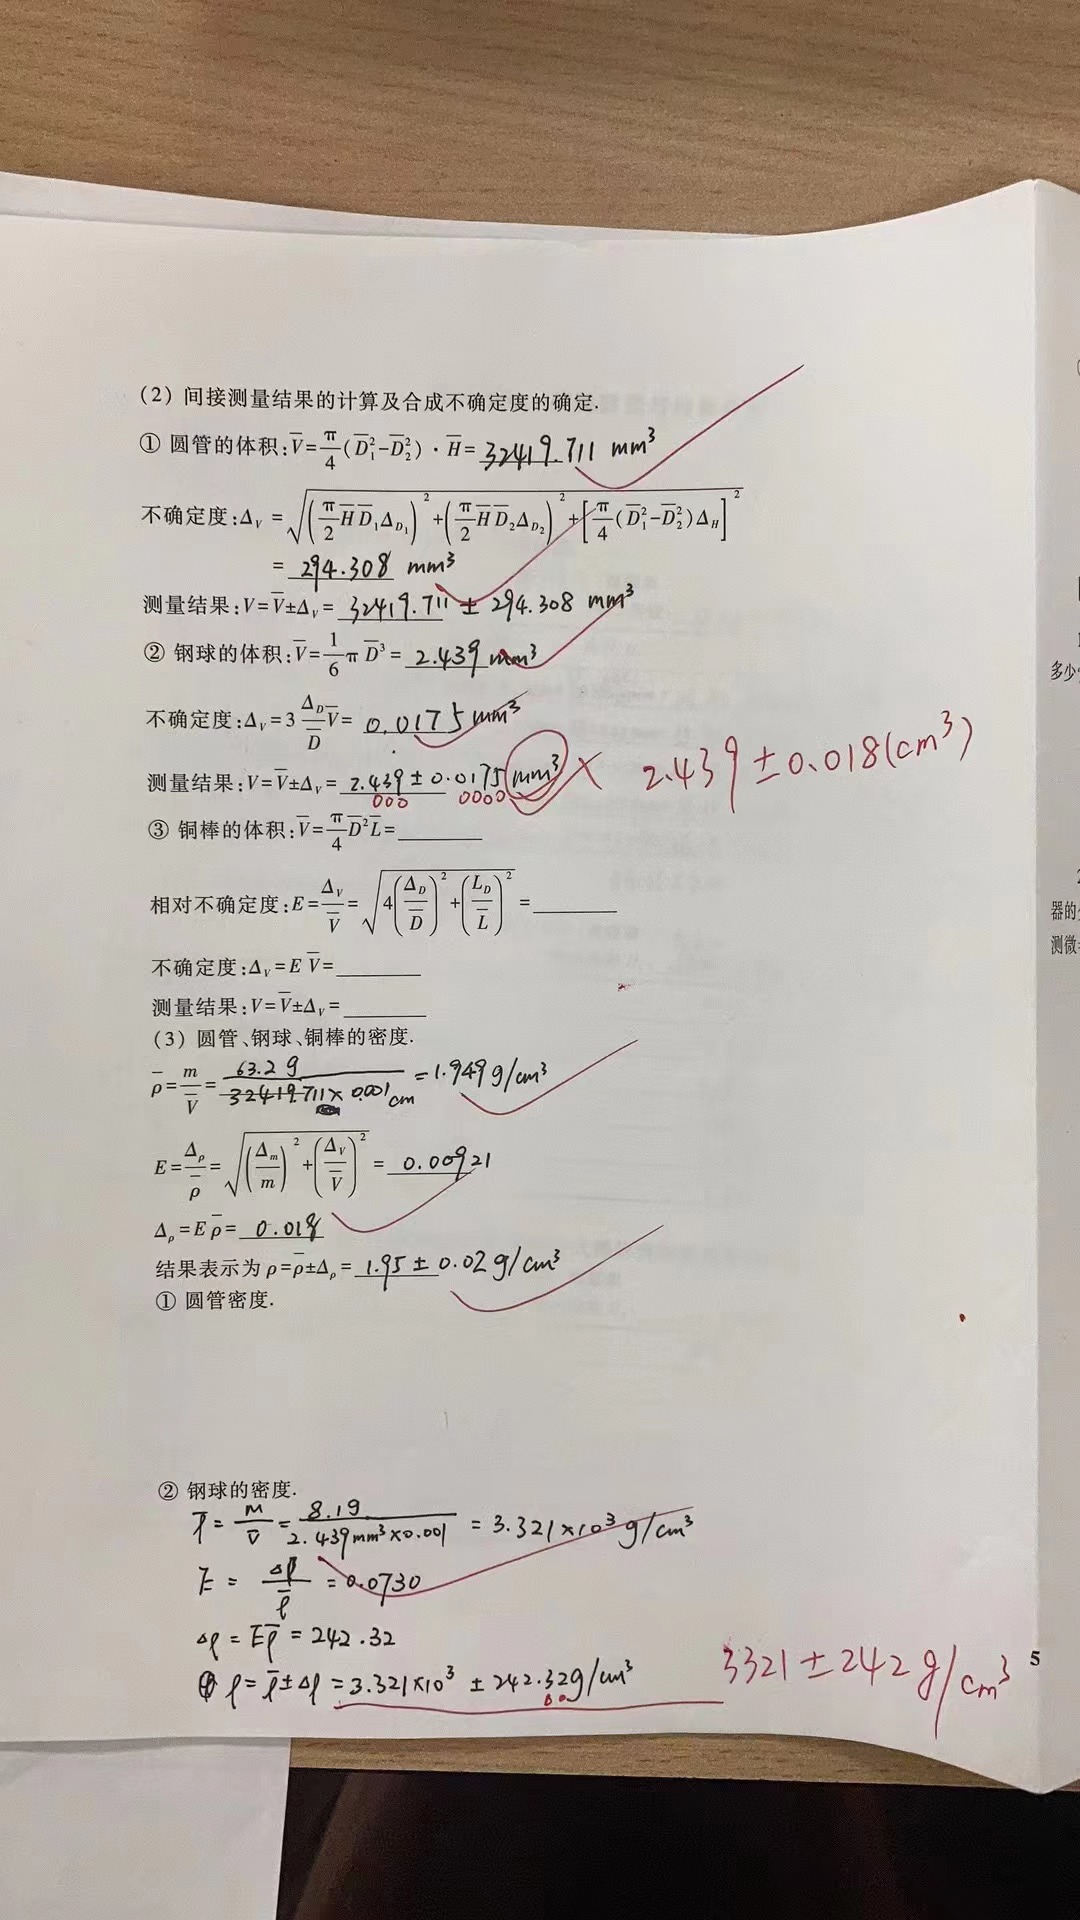 (2) 间接测量结果的计算及合成不确定度的确定.
① 圆管的体积:V̅=π/4(D̅₁²-D̅₂²)·H̅= 32419.711 mm³
不确定度:Δ_V =√((π/2 H̅D̅₁Δ_D₁)²+(π/2 H̅D̅₂Δ_D₂)²+[π/4(D̅₁²-D̅₂²)Δ_H]²)
= 294.308 mm³
测量结果:V=V̅±Δ_V= 32419.711 ± 294.308 mm³
② 钢球的体积:V̅=1/6 πD̅³= 2.439 mm³
不确定度:Δ_V=3 Δ_D/D̅ V̅= 0.0175 mm³
测量结果:V=V̅±Δ_V= 2.439 ± 0.0175 mm³ × 2.439 ± 0.018(cm³)
③ 铜棒的体积:V̅=π/4 D̅²L̅=
相对不确定度:E=Δ_V/V̅=√(4(Δ_D/D̅)²+(L_D/L̅)²)=
不确定度:Δ_V=E V̅=
测量结果:V=V̅±Δ_V=
(3) 圆管、钢球、铜棒的密度.
ρ̅=m/V̅= 63.2 g / 32419.711 × 0.001 cm = 1.949 g/cm³
E=Δ_ρ/ρ̅=√((Δ_m/m)²+(Δ_V/V̅)²)= 0.00921
Δ_ρ=Eρ̅= 0.018
结果表示为 ρ=ρ̅±Δ_ρ= 1.95 ± 0.02 g/cm³
① 圆管密度.
② 钢球的密度.
ρ̅ = m/V̅ = 8.1g / 2.439mm³×0.001 = 3.321×10³ g/cm³
E = Δρ/ρ̅ = 0.0730
Δρ = Eρ̅ = 242.32
ρ=ρ̅±Δρ = 3.321×10³ ± 242.32g/cm³ 3321 ± 242 g/cm³
5
多少
器的
测微